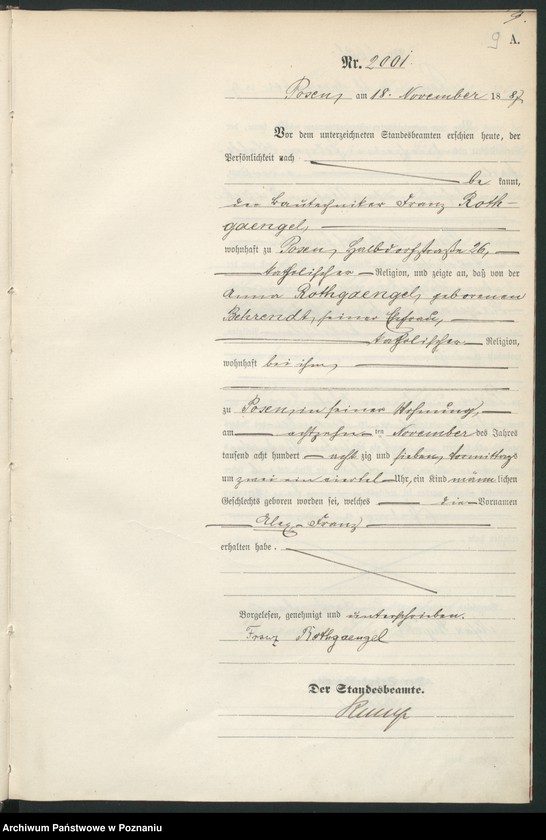 9.
9 A.
Nr. 2001.
Posen, am 18. November 1887
Vor dem unterzeichneten Standesbeamten erschien heute, der
Persönlichkeit nach
be kannt,
der Bautechniker Franz Roth-
gaengel,
wohnhaft zu Posen, Halbdorfstraße 26,
katholischer Religion, und zeigte an, daß von der
Anna Rothgaengel, geborenen
Behrendt, seiner Ehefrau,
katholischer Religion,
wohnhaft bei ihm,
zu Posen, in seiner Wohnung,
am achtzehn ten November des Jahres
tausend acht hundert acht zig und sieben, Vormittags
um zwei ein viertel Uhr, ein Kind männ lichen
Geschlechts geboren worden sei, welches die Vornamen
Alex Franz
erhalten habe.
Vorgelesen, genehmigt und unterschrieben.
Franz Rothgaengel
Der Standesbeamte.
Archiwum Państwowe w Poznaniu